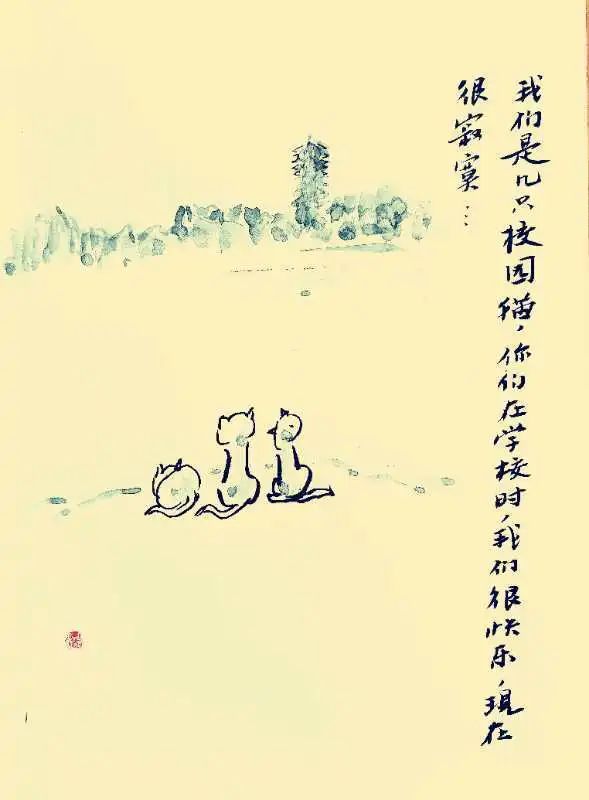 我们是几只校园猫，你们在学校时，我们很快乐，现在
很寂寞…